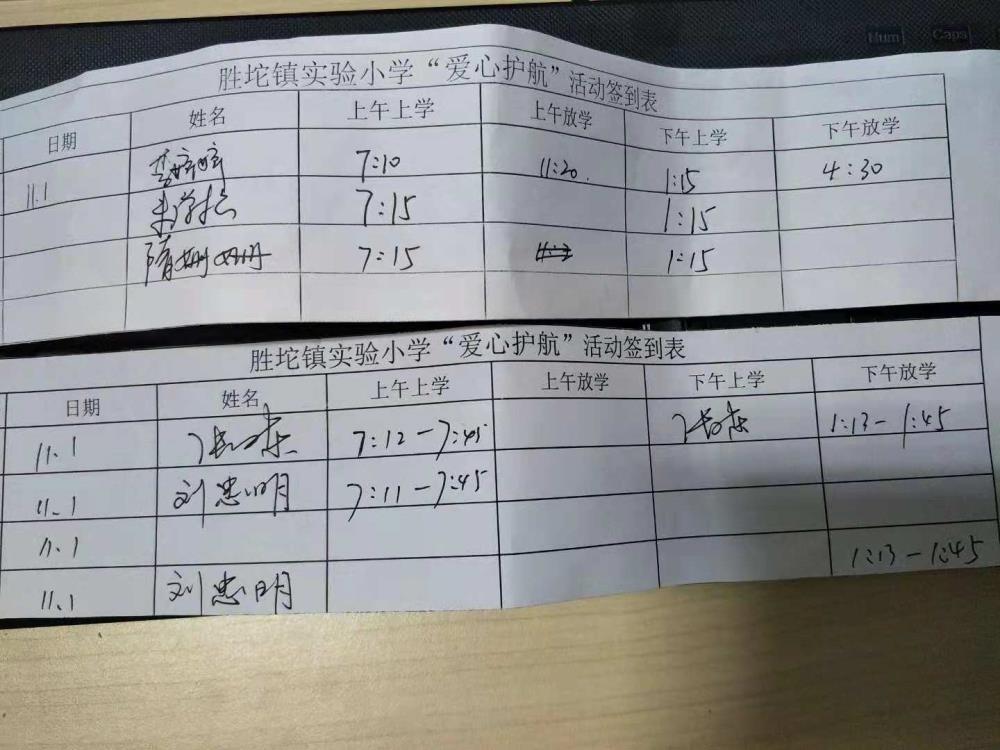 Num Caps
胜坨镇实验小学“爱心护航”活动签到表
日期 姓名 上午上学 上午放学 下午上学 下午放学
11.1 7:10 11:20. 1:15 4:30
7:15 1:15
隋姗姗 7:15 1:15
胜坨镇实验小学“爱心护航”活动签到表
日期 姓名 上午上学 上午放学 下午上学 下午放学
11.1 7:12-7:45 1:13-1:45
11.1 刘忠明 7:11-7:45
11.1
11.1 刘忠明 1:13-1:45